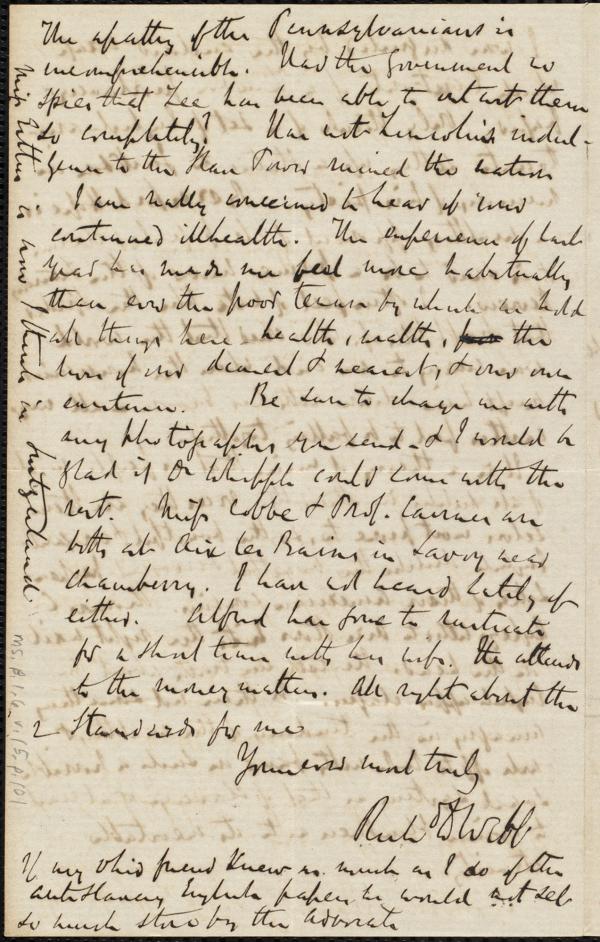 The apathy of the Pennsylvanians is
incomprehensible. Had the Government no
spies that Lee has been able to outwit them
so completely? Has not Lincoln's indul-
gence to the Slave Power ruined the nation
I am really concerned to hear of your
continued illhealth. The experience of last
year has made me feel more habitually
than ever the poor tenure by which we hold
all things here - health, wealth, the
lives of our dearest & nearest, & our own
existence. Be sure to charge me with
any photographs you send - & I would be
glad if Dr Whipple could come with the
rest. Miss Cobbe & Prof. Cairnes are
both at Aix les Bains in Savoy near
Chamberry. I have not heard lately of
either. Alfred has gone to rusticate
for a short time with his wife. He attends
to the money matters. All right about the
2 Standards for me
Yours ever most truly
Richd D Webb
If my Ohio friend knew as much as I do of the
antislavery English papers he would not set
so much store by the Advocate
Miss Estlin is now I think in Switzerland.
Ms. B.1.6, v.15, p.101